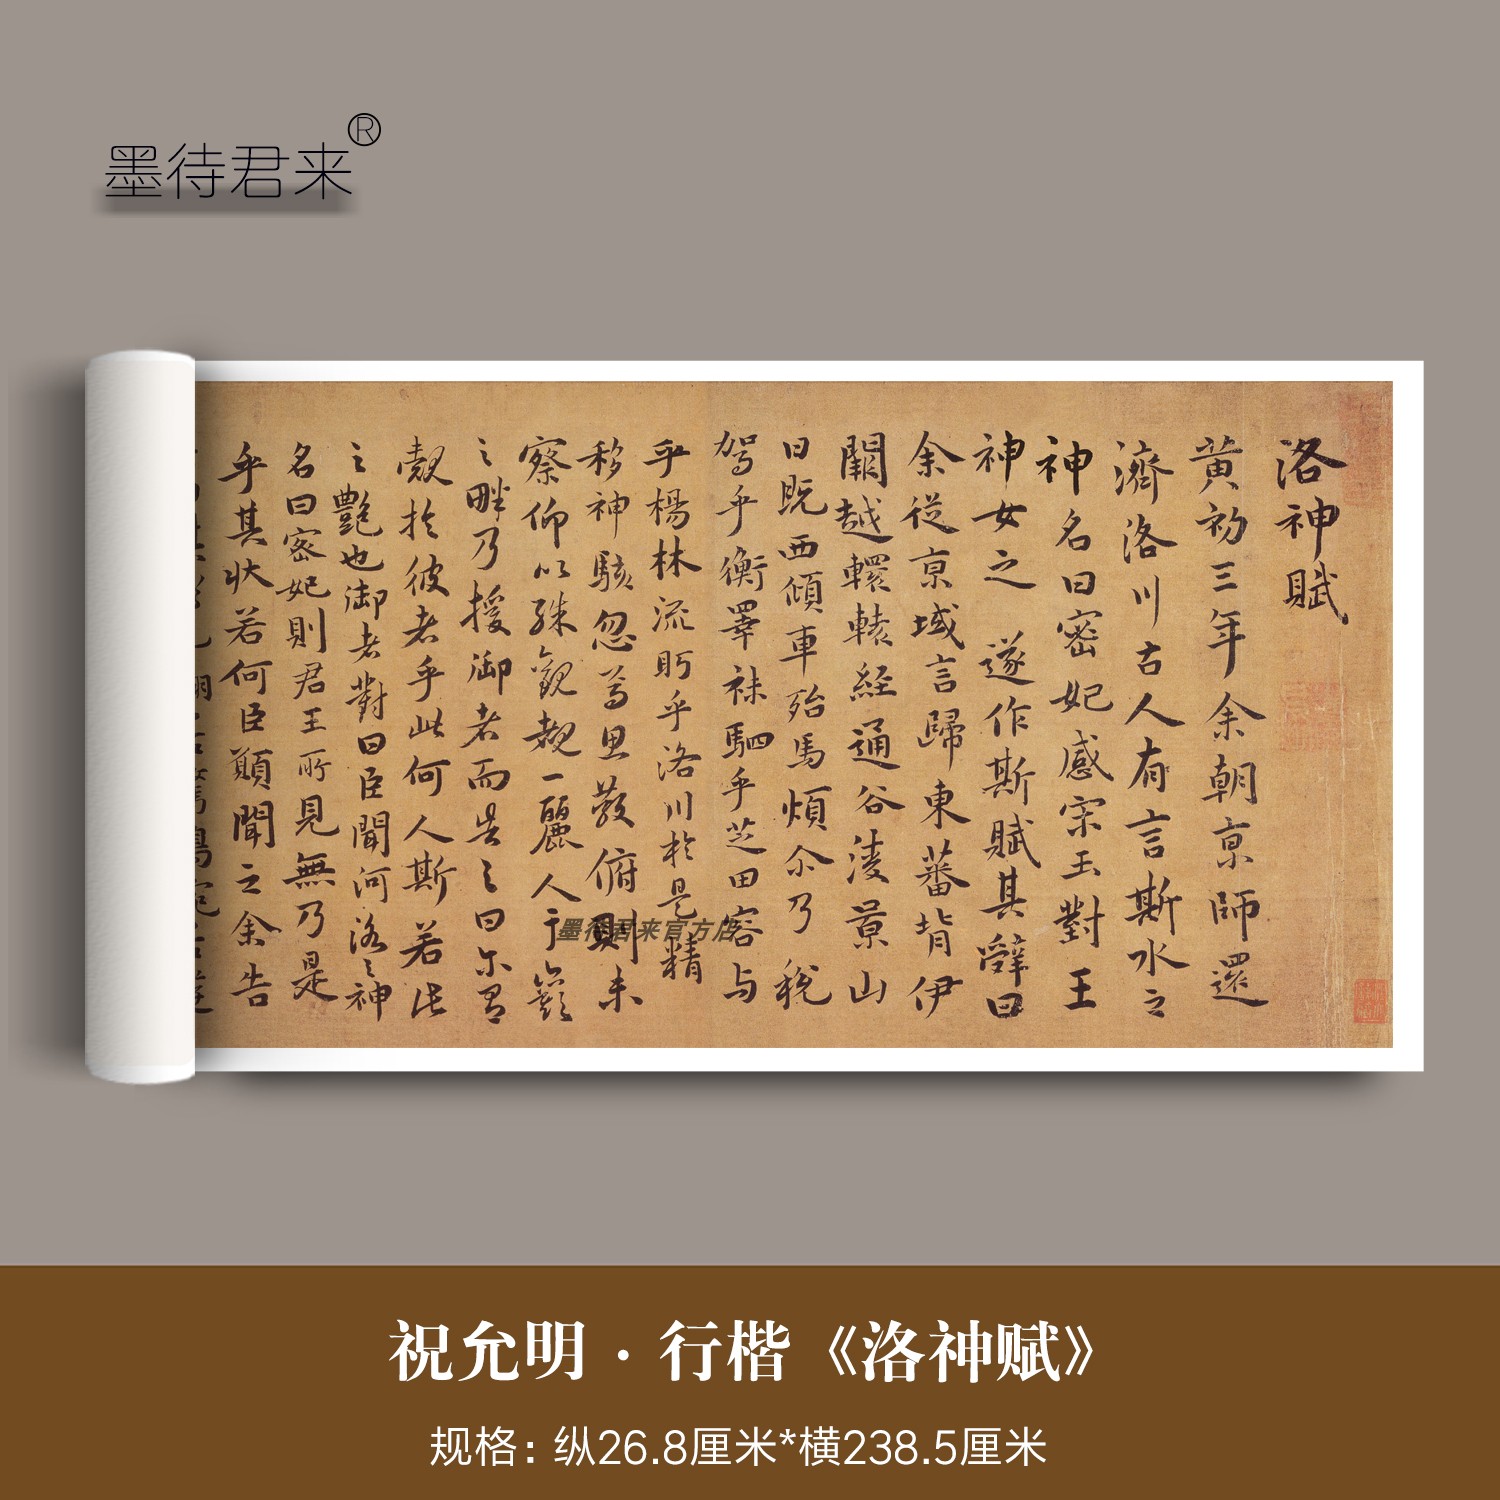 墨待君来®
洛神賦
黃初三年余朝京師還
濟洛川古人有言斯水之
神名曰宓妃感宋玉對王
神女之 遂作斯賦其辭曰
余従京域言歸東蕃背伊
闕越轘轅経通谷陵景山
日既西傾車殆馬煩尒乃税
駕乎蘅睪袜駟乎芝田容与
乎楊林流眄乎洛川於是精
移神駭忽焉思散俯則未
察仰以殊觀覩一麗人于巖
之畔乃援御者而告之曰尓
覿於彼者乎此何人斯若此
之艷也御者對曰臣聞河洛之神
名曰宓妃則君王所見無乃是
乎其状若何臣願聞之余告
墨待君来官方店
祝允明·行楷《洛神赋》
规格：纵26.8厘米*横238.5厘米